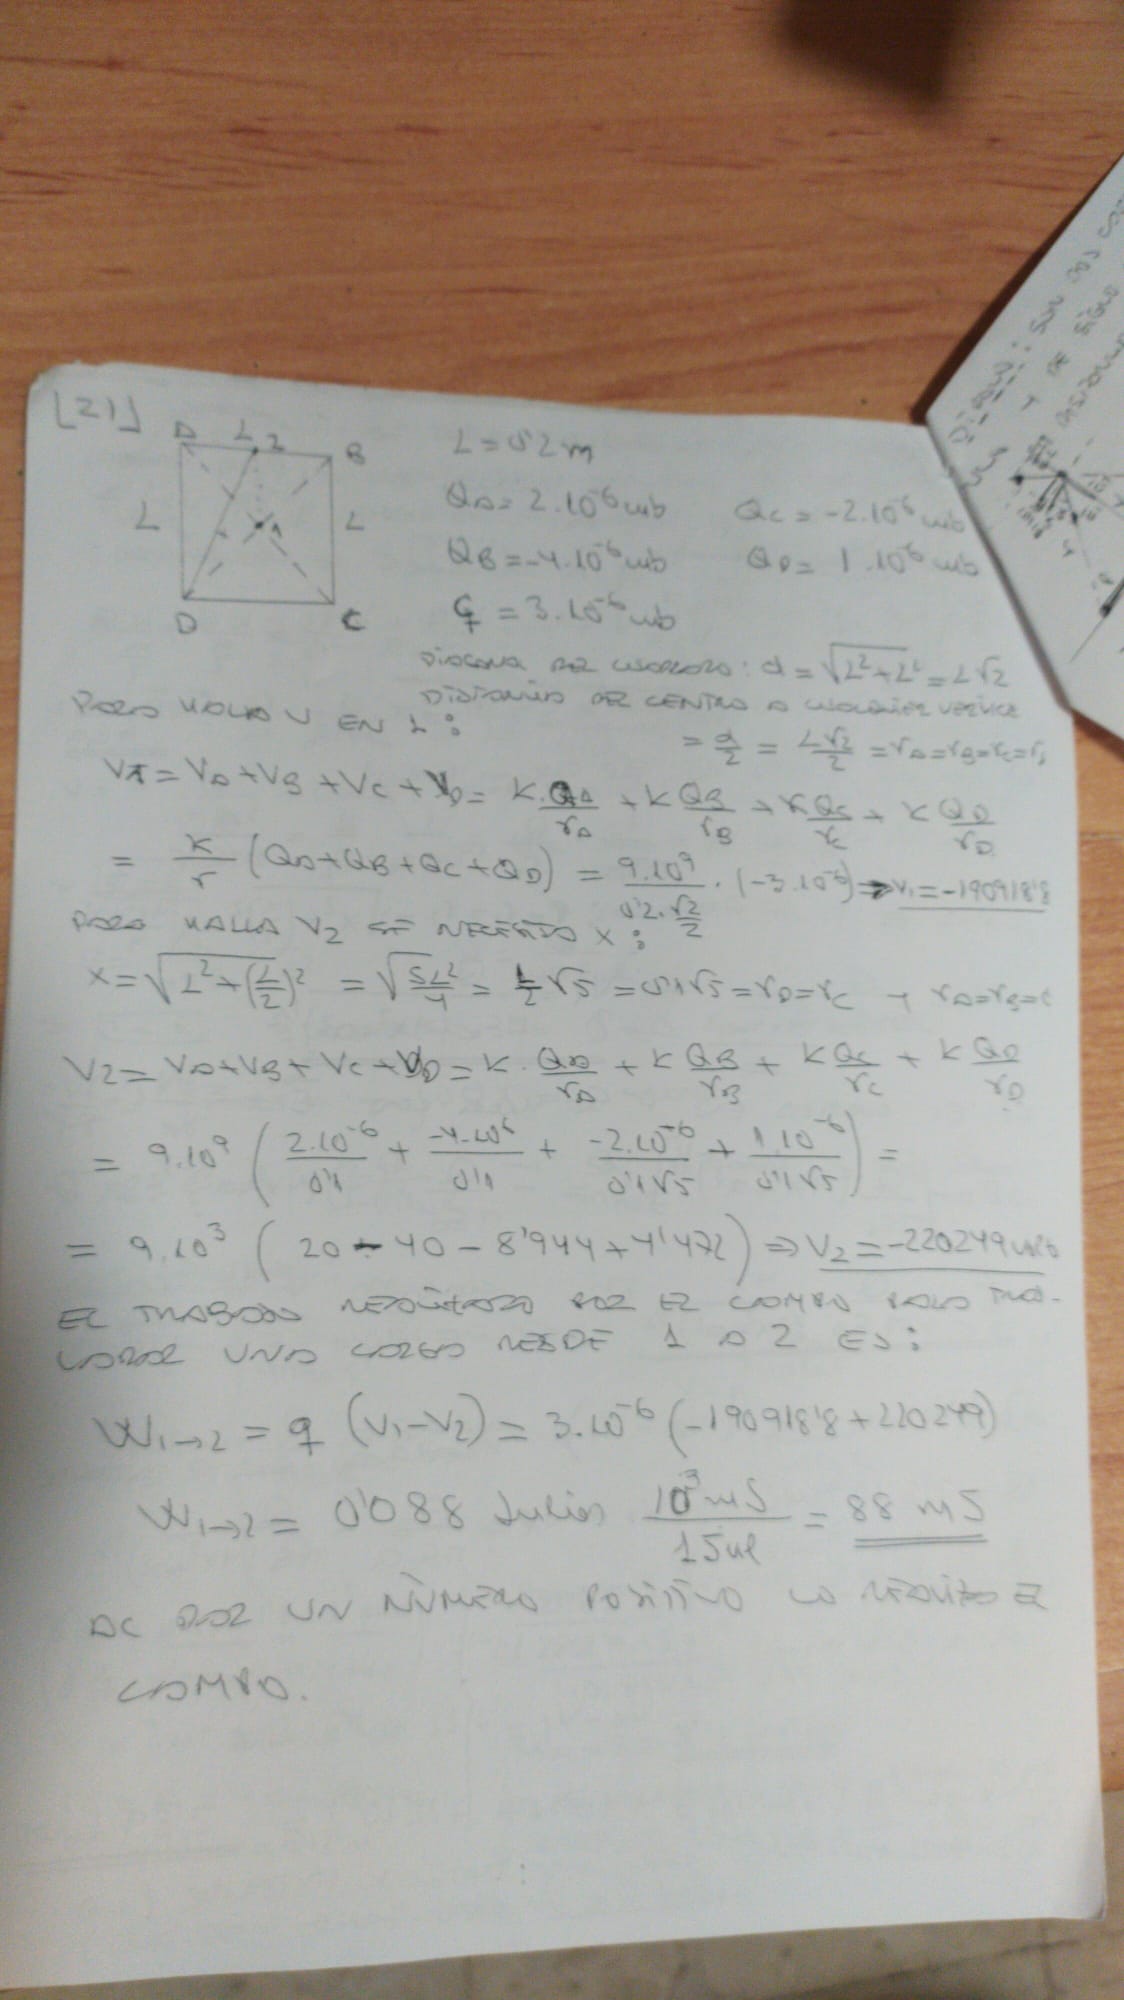 [21]
A L 2 B
L L
1
D C
L = 0'2 m
QA = 2·10^-6 culb QC = -2·10^-6 culb
QB = -4·10^-6 culb QD = 1·10^-6 culb
q = 3·10^-6 culb
DIAGONAL DEL CUADRADO: d = √(L²+L²) = L√2
DISTANCIA DEL CENTRO A CUALQUIER VERTICE
= d/2 = L√2/2 = rA = rB = rC = rD
PARA HALLAR V EN 1:
V1 = VA + VB + VC + VD = K·QA/rA + K QB/rB + K QC/rC + K QD/rD
= K/r (QA+QB+QC+QD) = 9·10^9/(0'2·√2/2) · (-3·10^-6) ⇒ V1 = -190918'8
PARA HALLAR V2 SE NECESITA X:
X = √(L²+(L/2)²) = √(5L²/4) = L/2 √5 = 0'1√5 = rD = rC Y rA = rB =
V2 = VA + VB + VC + VD = K·QA/rA + K QB/rB + K QC/rC + K QD/rD
= 9·10^9 (2·10^-6/0'1 + -4·10^6/0'1 + -2·10^-6/0'1√5 + 1·10^-6/0'1√5) =
= 9·10^3 (20 - 40 - 8'944 + 4'472) ⇒ V2 = -220249 volt
EL TRABAJO REALIZADO POR EL CAMPO PARA TRAS-
LADAR UNA CARGA DESDE 1 A 2 ES:
W1→2 = q (V1-V2) = 3·10^-6 (-190918'8 + 220249)
W1→2 = 0'088 Julios 10^3 mJ/1Jul = 88 mJ
AL DAR UN NÚMERO POSITIVO LO REALIZA EL
CAMPO.